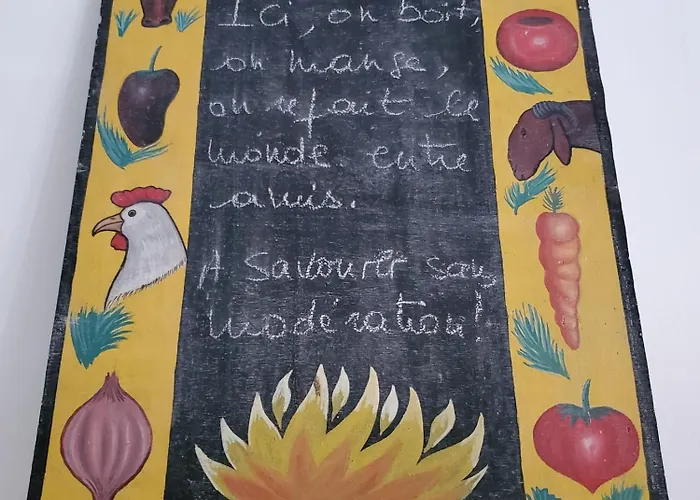 Ici, on boit,
on mange,
on refait le
monde entre
amis.
A savourer sans
modération!